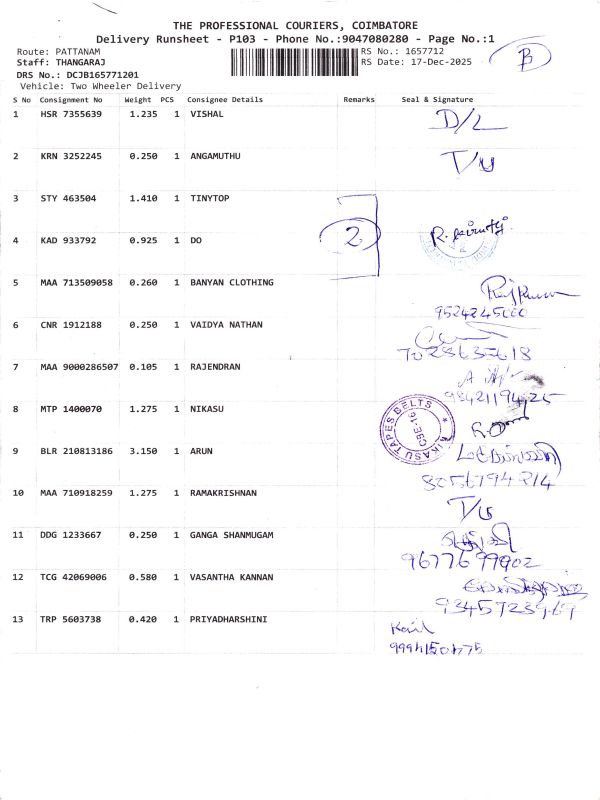 THE PROFESSIONAL COURIERS, COIMBATORE
Delivery Runsheet - P103 - Phone No.:9047080280 - Page No.:1
Route: PATTANAM RS No.: 1657712
Staff: THANGARAJ RS Date: 17-Dec-2025
DRS No.: DCJB165771201
Vehicle: Two Wheeler Delivery
B
S No Consignment No Weight PCS Consignee Details Remarks Seal & Signature
1 HSR 7355639 1.235 1 VISHAL D/L
2 KRN 3252245 0.250 1 ANGAMUTHU T/U
3 STY 463504 1.410 1 TINYTOP
4 KAD 933792 0.925 1 DO 2
5 MAA 713509058 0.260 1 BANYAN CLOTHING
6 CNR 1912188 0.250 1 VAIDYA NATHAN
7 MAA 9000286507 0.105 1 RAJENDRAN
8 MTP 1400070 1.275 1 NIKASU
NIKASU TAPES BELTS
9 BLR 210813186 3.150 1 ARUN
8056794214
10 MAA 710918259 1.275 1 RAMAKRISHNAN T/U
11 DDG 1233667 0.250 1 GANGA SHANMUGAM
9677699902
12 TCG 42069006 0.580 1 VASANTHA KANNAN
13 TRP 5603738 0.420 1 PRIYADHARSHINI